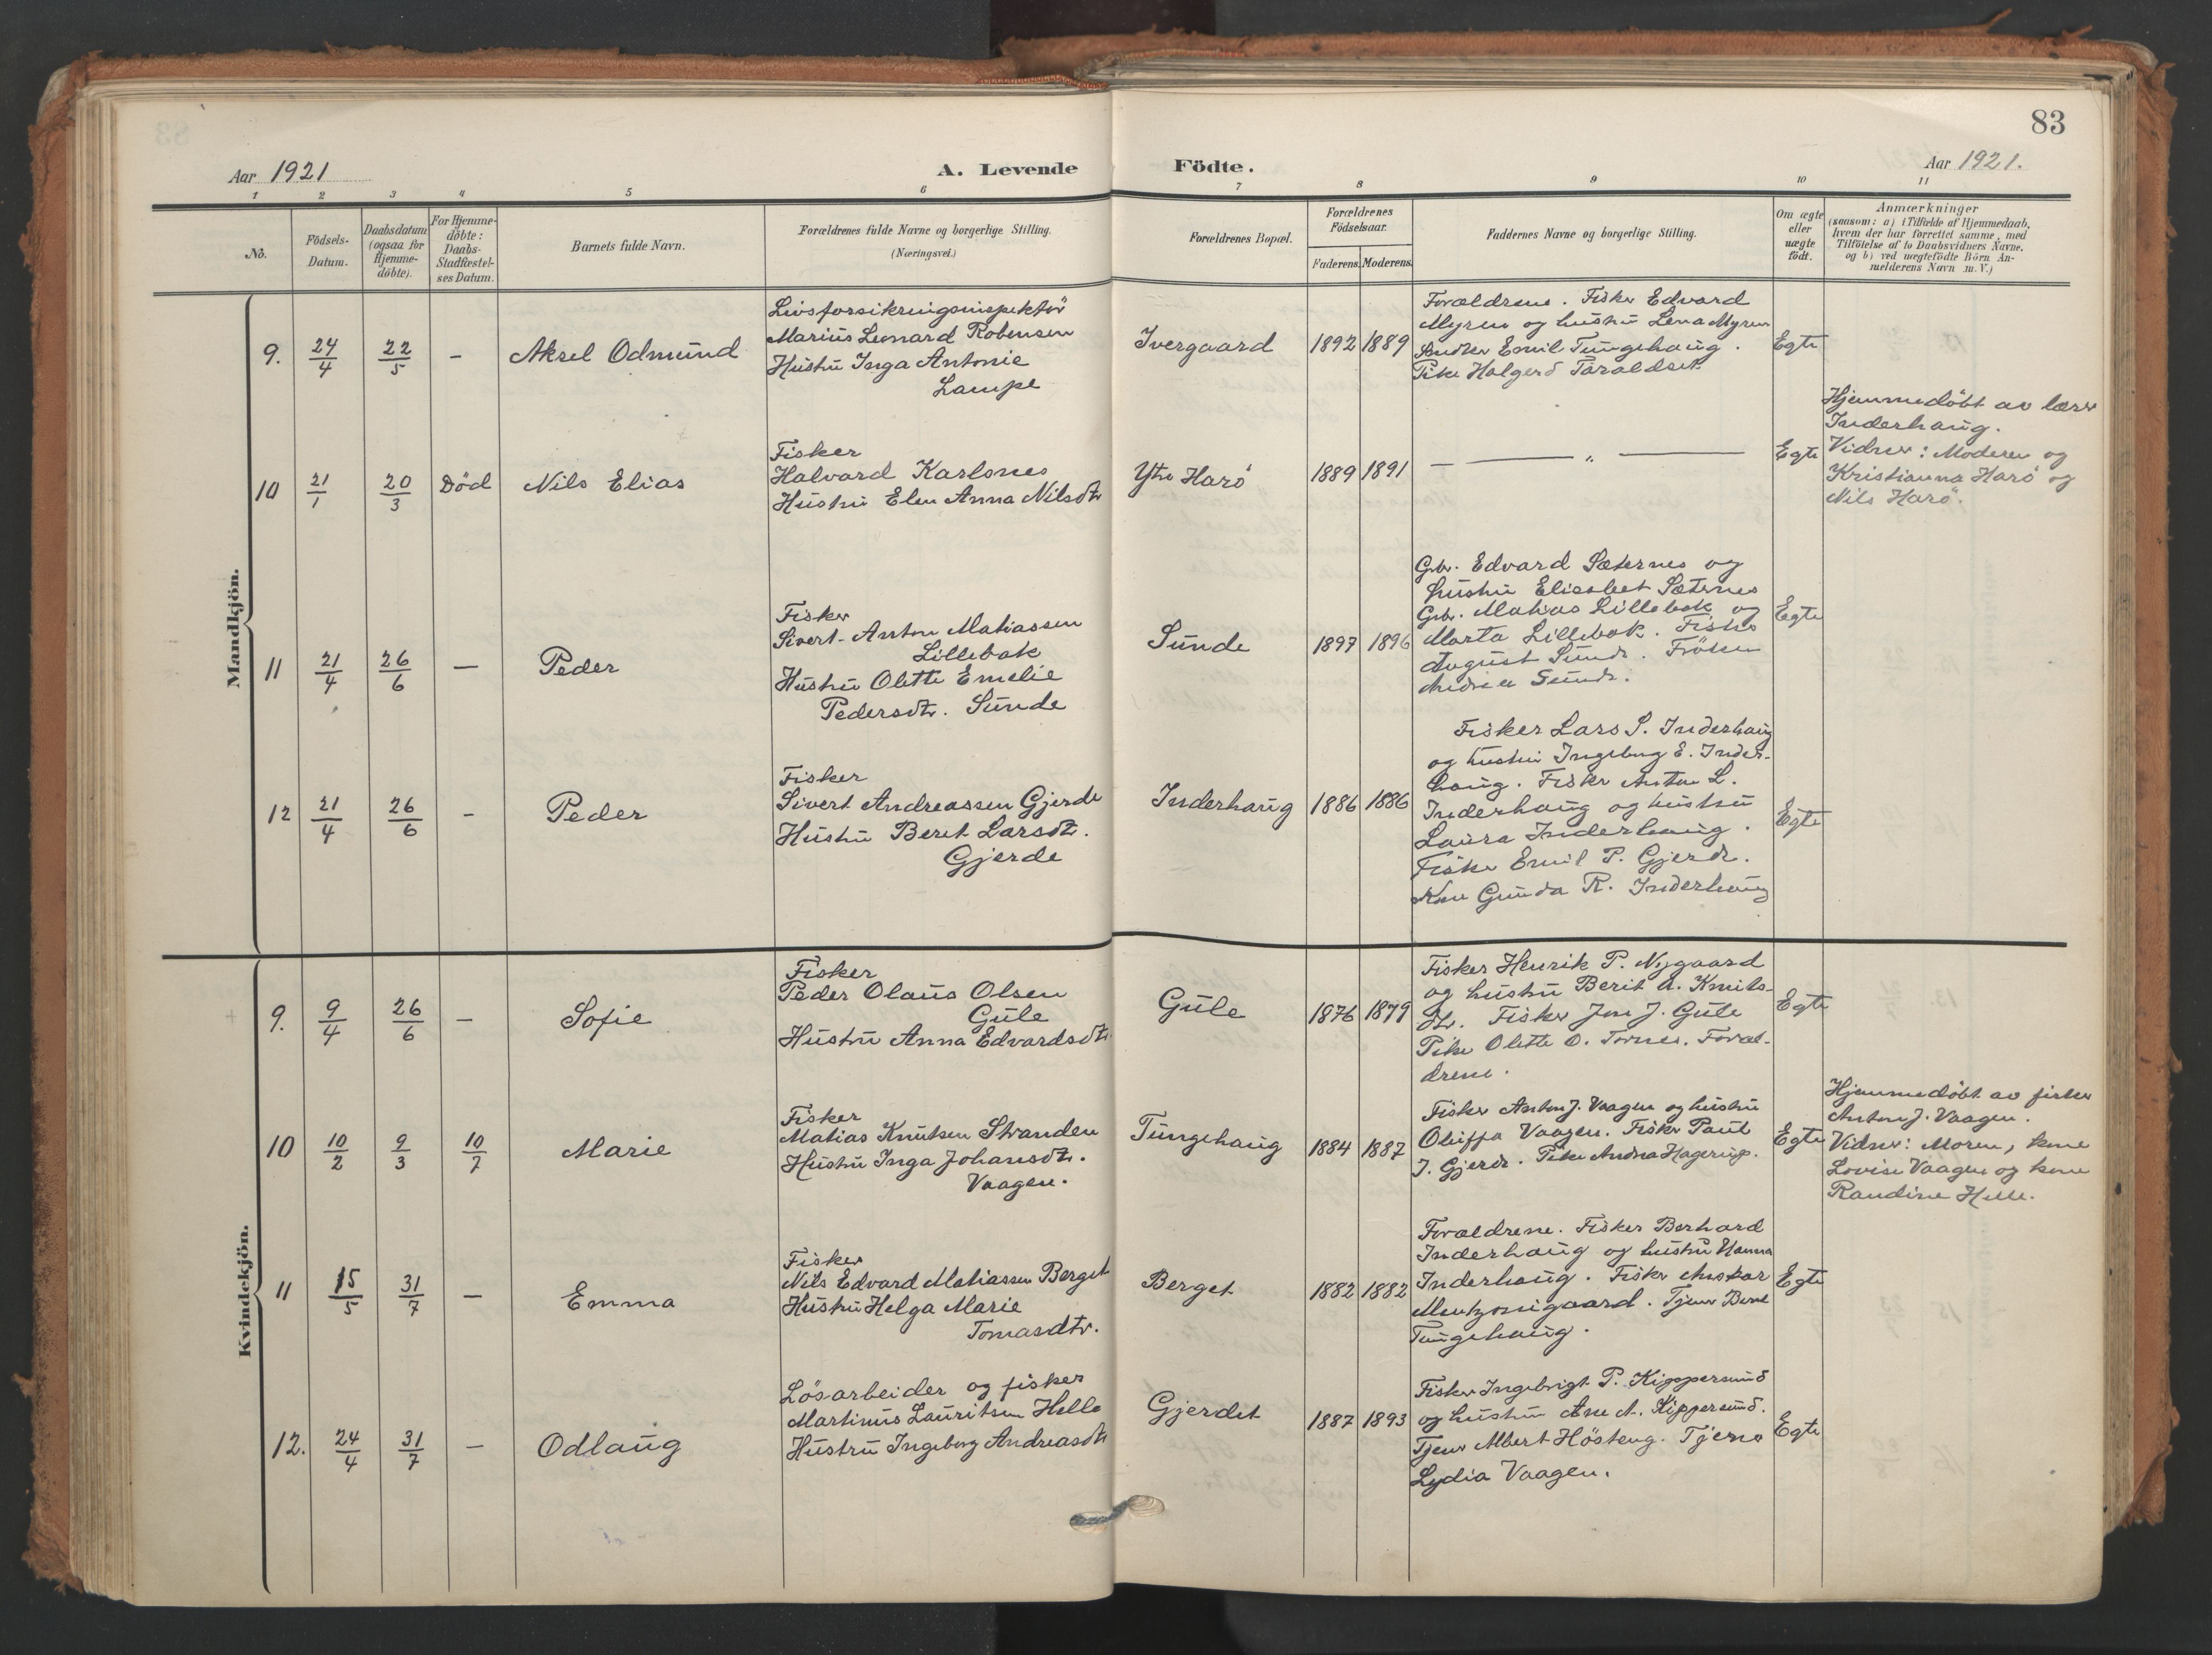 83
Aar 1921
A. Levende
Födte.
Aar 1921.
1 2 3 4 5 6 7 8 9 10 11
No.
Födsels-
Datum.
Daabsdatum
(ogsaa for
Hjemme-
döbte).
For Hjemme-
döbte:
Daabs-
Stadfæstel-
ses Datum.
Barnets fulde Navn.
Forældrenes fulde Navne og borgerlige Stilling.
(Næringsvei.)
Forældrenes Bopæl.
Forældrenes
Födselsaar.
Faderens.
Moderens.
Faddernes Navne og borgerlige Stilling.
Om ægte
eller
uægte
födt.
Anmærkninger
(saasom: a) i Tilfælde af Hjemmedaab,
hvem der har forrettet samme, med
Tilföielse af to Daabsvidners Navne,
og b) ved uægtefödte Börn An-
melderens Navn m. V.)
Mandkjön.
9. 24/4 22/5 — Aksel Odmund
Livsforsikringsinspektör
Marius Leonard Robensen
Hustru Inga Antonie
Lampe
Ivergaard 1892 1889
Forældrene. Fisker Edvard
Myren og hustru Lena Myren
Emil Tungehaug.
Pike Halgerd Taraldset.
Egte
10 21/1 20/3 Död Nils Elias
Fisker
Halvard Karlsnes
Hustru Elen Anna Nilsdtr
Ytre Harö 1889 1891
— „ —
Egte
Hjemmedöbt av lærer
Inderhaug.
Vidner: Moderen og
Kristianna Harö og
Nils Harö.
11 21/4 26/6 — Peder
Fisker
Sivert Anton Matiassen
Lillebok
Hustru Olette Emelie
Pedersdtr. Sunde
Sunde 1897 1896
Grb. Edvard Sæternes og
hustru Eliesbet Sæternes
Grb. Matias Lillebok og
Marta Lillebok. Fisker
August Sunde. Fröken
Andrea Sunde.
Egte
12 21/4 26/6 - Peder
Fisker
Sivert Andreassen Gjerde
Hustru Beret Larsdtr.
Gjerde
Inderhaug 1886 1886
Fisker Lars S. Inderhaug
og hustru Ingeborg E. Inder-
haug. Fisker Anton L.
Inderhaug og hustru
Laura Inderhaug.
Fisker Emil P. Gjerde.
Kone Gunda R. Inderhaug
Egte
Kvindekjön.
9. 9/4 26/6 — Sofie
Fisker
Peder Olaus Olsen
Gule
Hustru Anna Edvardsdtr.
Gule 1876 1879
Fisker Henrik P. Nygaard
og hustru Berit A. Knuts-
dtr. Fisker Jon J. Gule
Pike Olette O. Tornes. Foræl-
drene.
Egte
10 10/2 9/3 10/7 Marie
Fisker
Matias Knutsen Stranden
Hustru Inga Johansdtr.
Vaagen.
Tungehaug 1884 1887
Fisker Anton J. Vaagen og hustru
Oliffa Vaagen. Fisker Paul
J. Gjerde. Pike Andrea Hagerup.
Egte
Hjemmedöbt av fisker
Anton J. Vaagen.
Vidner: Moren, kone
Lovise Vaagen og kone
Randine Helle.
11 15/5 31/7 — Emma
Fisker
Nils Edvard Matiassen Berget
Hustru Helga Marie
Tomasdtr.
Berget 1882 1882
Forældrene. Fisker Berhard
Inderhaug og hustru Hanna
Inderhaug. Fisker Anskar
Mentzonigaard. Tjener Berte
Tungehaug.
Egte
12. 24/4 31/7 — Odlaug
Lösarbeider og fisker
Martinus Lauritsen Helle
Hustru Ingeborg Andreasdtr
Gjerdet 1887 1893
Fisker Ingebrigt P. Kippersund
og hustru Ane A. Kippersund.
Tjener Albert Hösteng. Tjener
Lydia Vaagen.
Egte